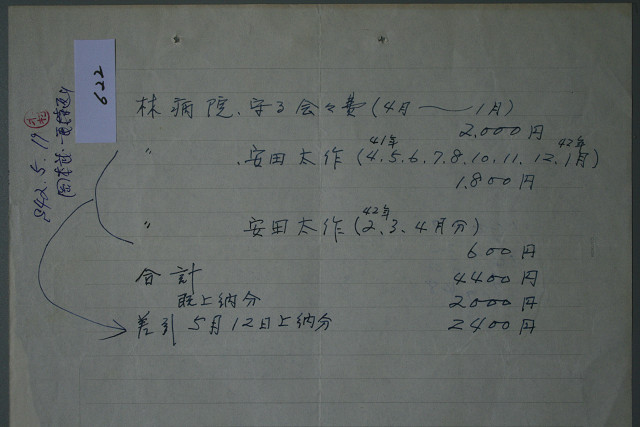 622
S42.5.19
林病院、守る会々費(4月――1月)
2,000円
〃 、安田太作(41年 4.5.6.7.8.10.11.12.42年 1月)
1.800円
〃 安田太作(42年 2.3.4月分)
600円
合計 4400円
既上納分 2000円
差引 5月12日上納分 2400円